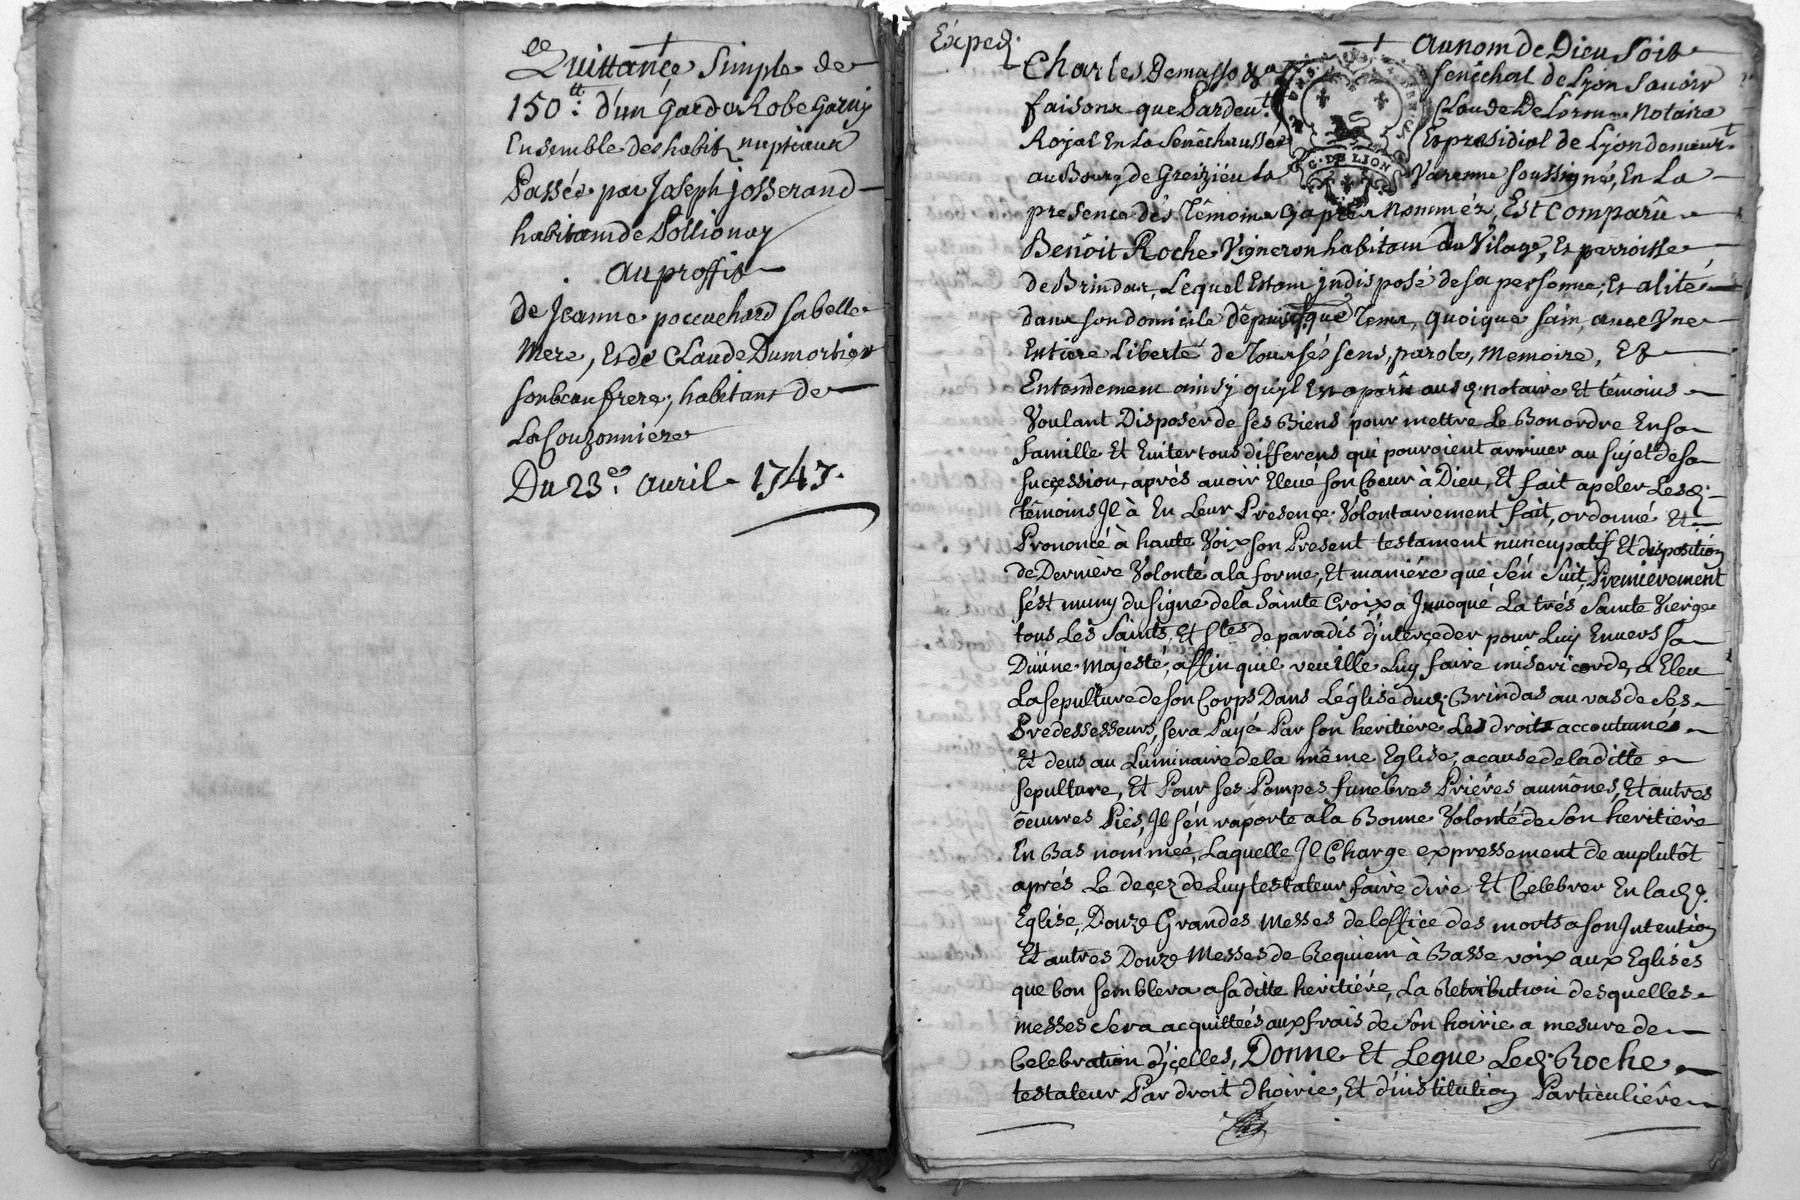 Quittance simple de
150tt: d'un Garderobe Garny
Ensemble des habits nuptiaux
Passée par Joseph josserand
habitant de Pollionay
au proffit
de Jeanne poccachard sa belle
Mere, Et de Claude Dumortier
son beau frere, habitans de
La Couzonniere
Du 23e. avril 1747.
Exped.
Au nom de Dieu Soit
Charles Demasso
senechal de Lyon Savoir
faisons que Pardevt.
Claude De Lorme Notaire
Royal En la Sénéchaussée
Et presidial de Lyon demeurt.
au Bourg de Greizieu la
Varenne soussigné, En La
presence dés Témoins Cy aprés Nommez, Est Comparû
Benoit Roche Vigneron habitant du Vilage, Et parroisse
de Brindas, Lequel Estant jndisposé de sa personne, Et alité
dans son domicile depuis quelque Tems, quoique sain, avec Une
Entiere Liberté de Tous sés sens, parole, Memoire, Et
Entendement ainsy qu'yl En a parû aud. notaire Et témoins
Voulant Disposer de ses Biens pour mettre Le Bon ordre En sa
famille Et Eviter tous differens qui pouroient arriver au sujet de sa
succession, aprés avoir Elevé son Coeur à Dieu, Et fait apeler Lesd.
témoins Jl à En Leur Presence Volontairement fait, ordonné Et
Prononcé à haute Voix son Present testament nuncupatif Et disposition
de Derniére Volonté a la forme, Et maniére que s'én suit, Premiérement
s'est muny du signe de la Sainte Croix a Jnvoqué La trés Sainte Vierge
tous Lés Saints, Et Stes de paradis d'jnterçeder pour Luy Envers sa
Divine Majesté, affin qu'il veuille Luy faire misericorde, a Eleu
La sepulture de son Corps Dans L'église dud. Brindas au vas de Ses
Prédessesseurs, sera Payé Par son heritiére Les droits accoutumés
Et deus au Luminaire de la même Eglise, a cause de la ditte
sepulture, Et Pour ses Pompes funébres Priéres aumônes, Et autres
oeuvres Piés, Jl s'én raporte a la Bonne Volonté de Son heritiére
En Bas nommée, Laquelle Jl Charge expressement de au plutôt
aprés Le deçez de Luy testateur faire dire Et Celebrer En lad.
Eglise, Douze Grandes Messes de l'office des morts a son Jntention
Et autres Douze Messes de Requiem à Basse voix aux Eglisés
que bon semblera a sa ditte heritiére, La Retribution desquelles
messes sera acquittées aux frais de Son hoirie a mesure de
Celebration d'jçelles, Donne Et Legue Led. Roche
testateur Par droit d'hoirie, Et d'institution Particuliére
G. DE LION